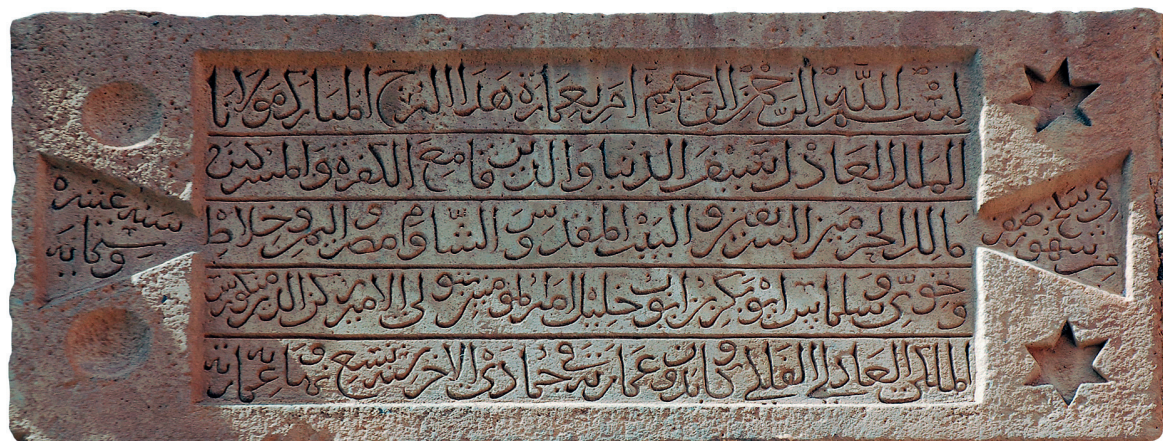 بسم الله الرحمن الرحيم امر بعمارة هذا البرج المبارك مولانا
الملك العادل سيف الدنيا والدين قامع الكفرة والمشركين
مالك الحرمين الشريفين والبيت المقدس والشام ومصر واليمن وخلاط
وخوي وسلماس ابو بكر بن ايوب خليل امير المؤمنين بتولي الامير ركن الدين منكورس
الملكي العادلي الفلكي كان بدو عمارته في جمادى الاخر سنة تسع ونهاية عمارته
في سلخ صفر
من شهور
سنة عشرة
وستمائة